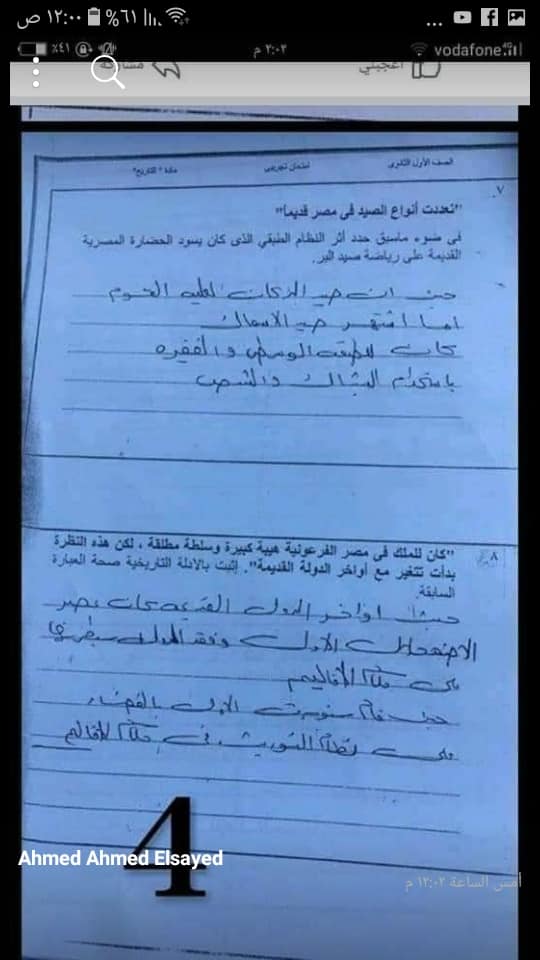 ١٢:٠٠ ص ٦١%
٤١٪ ٢:٠٢ م vodafone
أعجبني مشاركة
الصف الأول الثانوى امتحان تجريبى مادة "التاريخ"
٧.
"تعددت أنواع الصيد فى مصر قديماً"
فى ضوء ماسبق حدد أثر النظام الطبقي الذى كان يسود الحضارة المصرية
القديمة على رياضة صيد البر.
حيث ان صيد البر كان لعلية القوم
اما اشتهر صيد الاسماك
كان للطبقه الوسطى والفقيره
باستخدام الشباك والشص
٨.
"كان للملك فى مصر الفرعونية هيبة كبيرة وسلطة مطلقة ، لكن هذه النظرة
بدأت تتغير مع أواخر الدولة القديمة". إثبت بالادلة التاريخية صحة العبارة
السابقة.
حيث اواخر الدولة القديمه عصر
الاضمحلال الاول وفقد الملوك سيطرتها
على حكام الأقاليم
حيث قام سنوسرت بالقضاء
على نظام التوريث فى حكام الأقاليم
4
Ahmed Ahmed Elsayed
أمس الساعة ١٢:٠٢ م